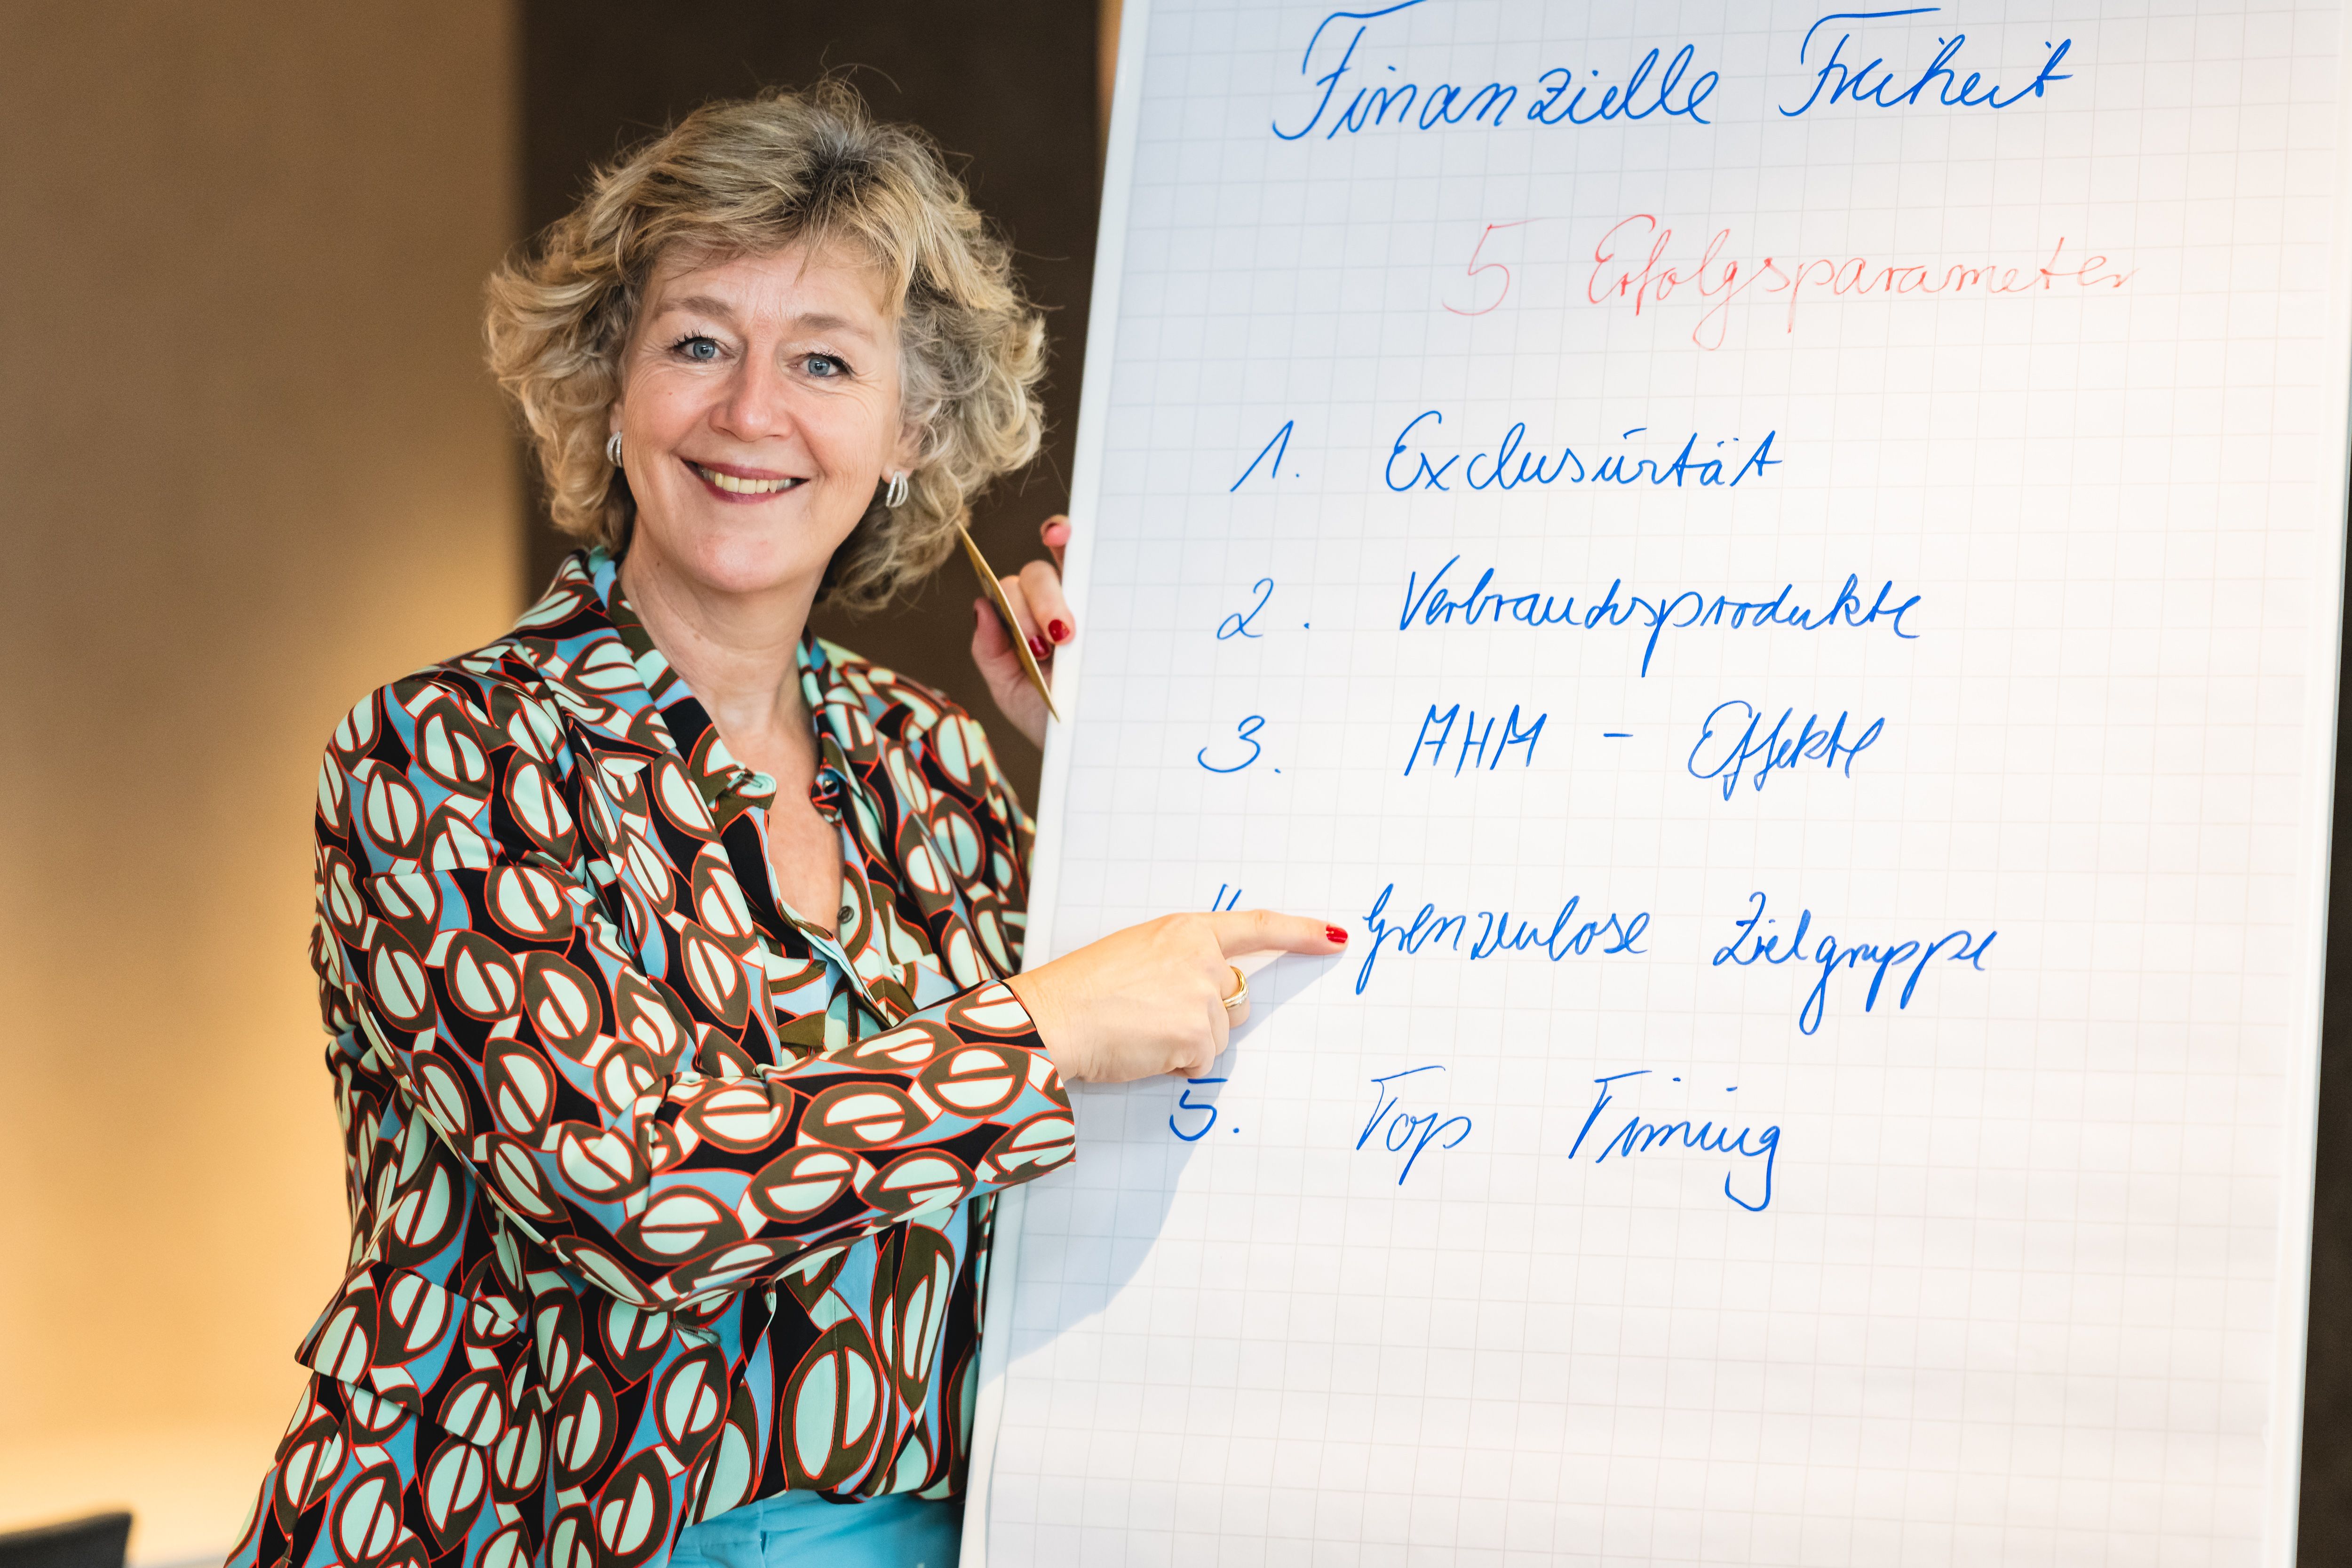 Finanzielle Freiheit
5 Erfolgsparameter
1. Exclusivität
2. Verbrauchsprodukte
3. AHM - Effekte
4 Grenzenlose Zielgruppe
5. Top Timing